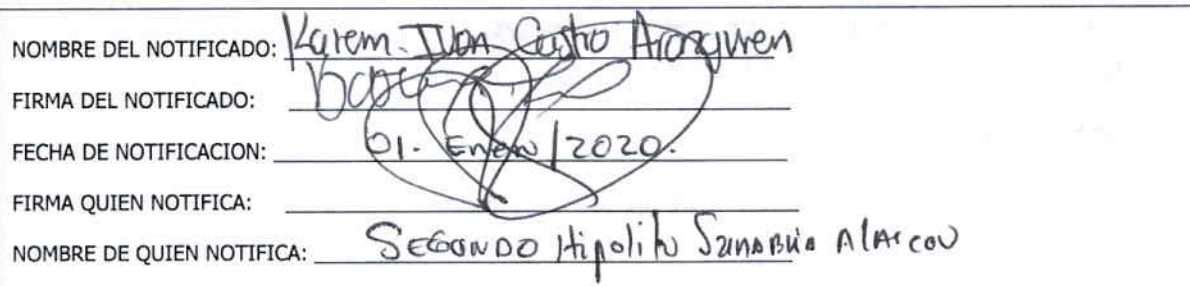 NOMBRE DEL NOTIFICADO: Karem Castro Aranguren
FIRMA DEL NOTIFICADO:
FECHA DE NOTIFICACION: 01. Enero/2020.
FIRMA QUIEN NOTIFICA:
NOMBRE DE QUIEN NOTIFICA: SEGUNDO Hipolito Sanabria Alarcon